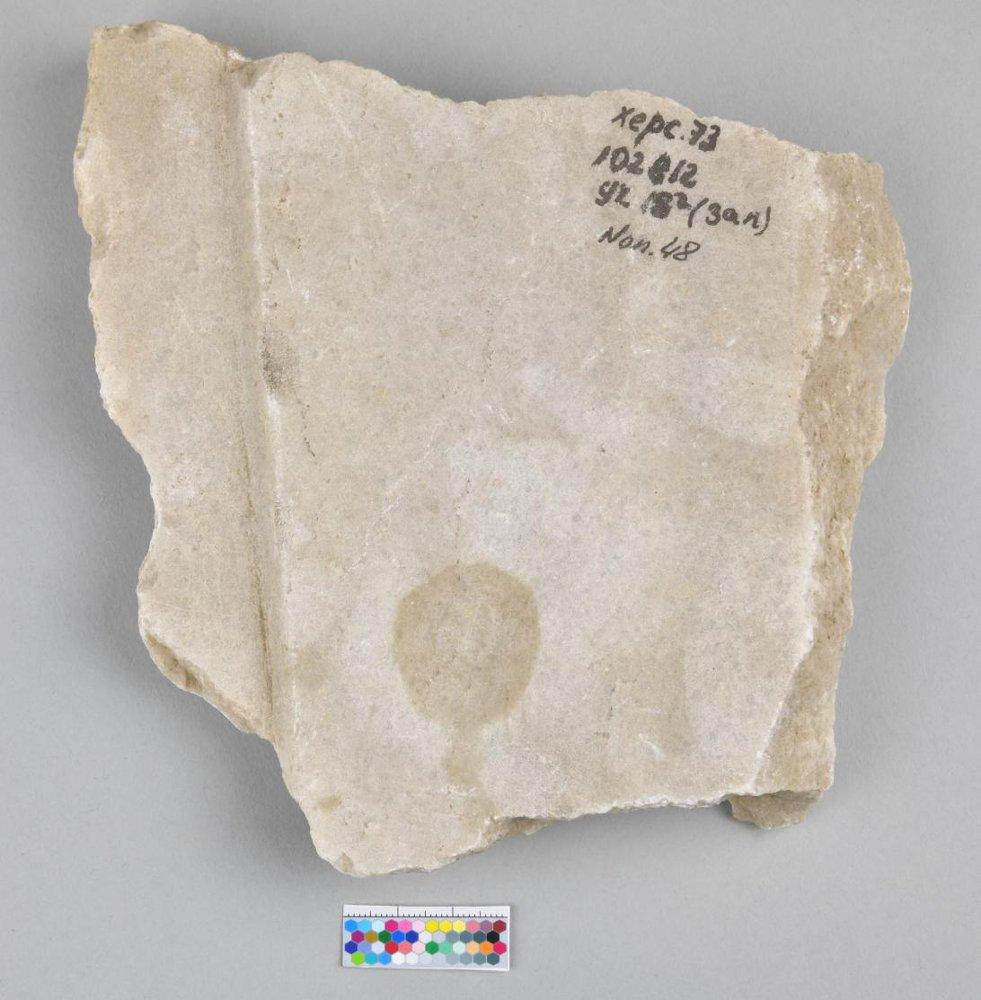 Херс.73
102 12
ук 15²(зап)
Nоп.48